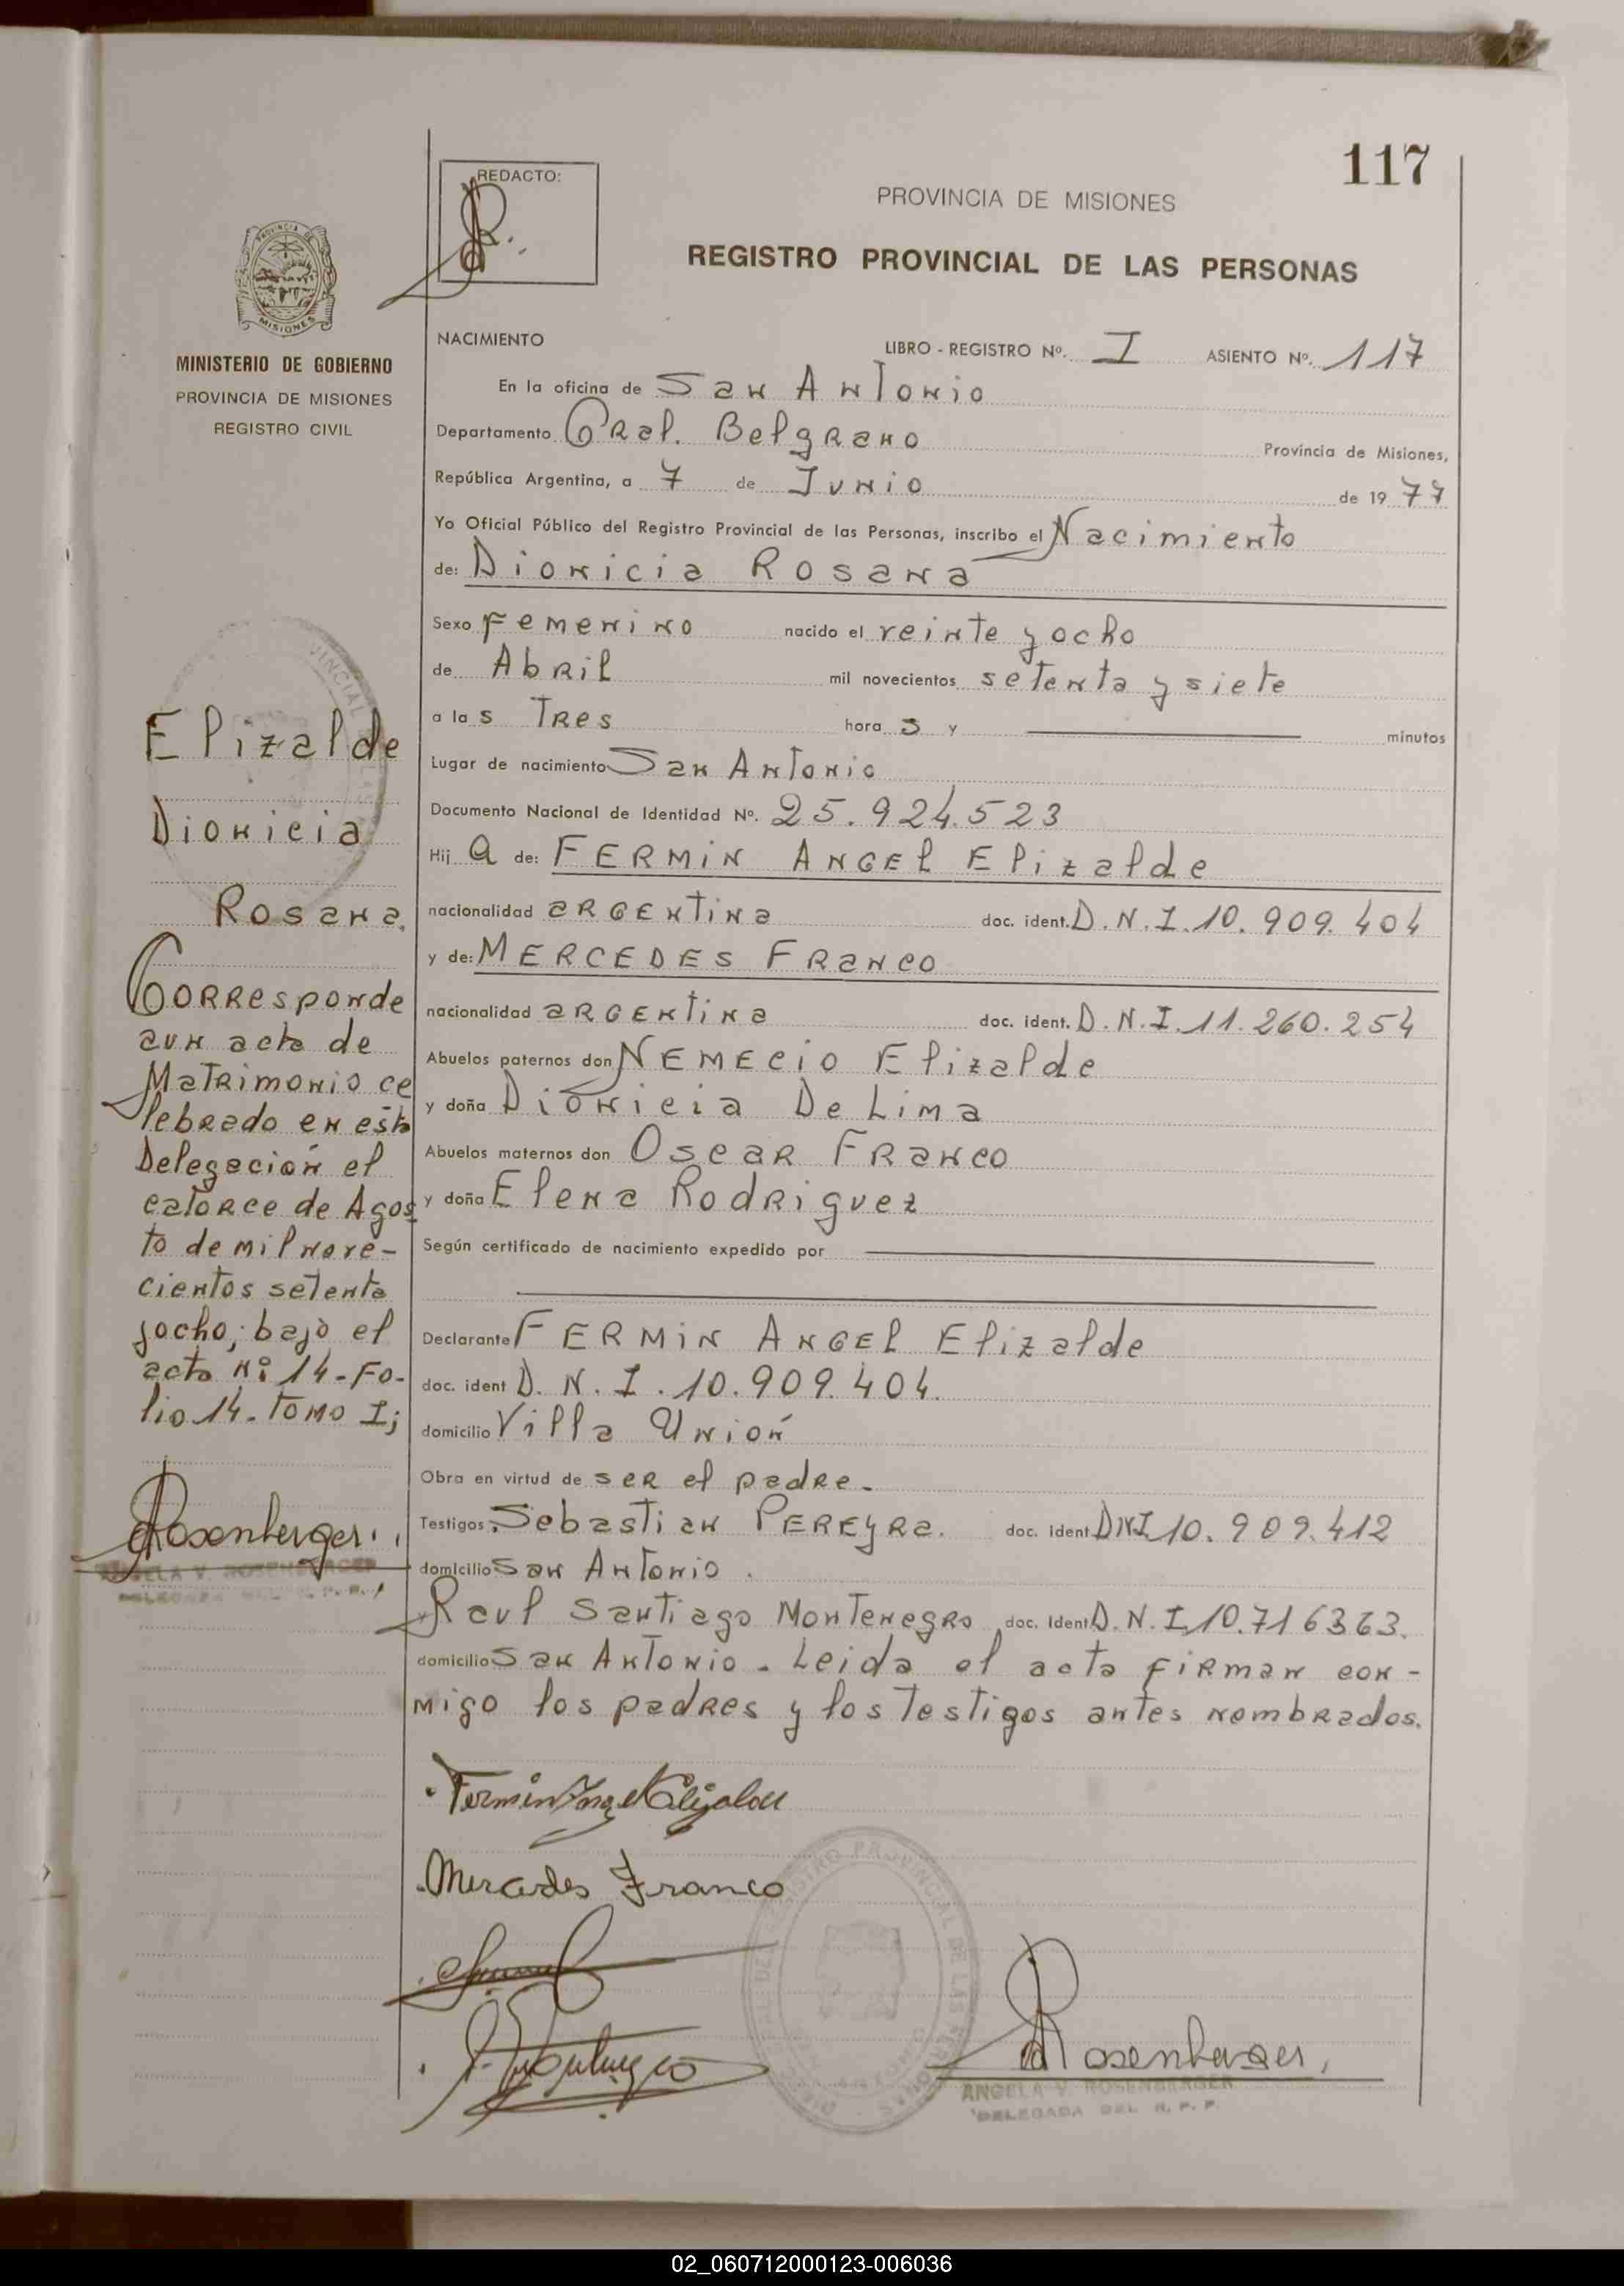 117
REDACTO:
PROVINCIA DE MISIONES
REGISTRO PROVINCIAL DE LAS PERSONAS
PROVINCIA DE
MISIONES
MINISTERIO DE GOBIERNO
PROVINCIA DE MISIONES
REGISTRO CIVIL
NACIMIENTO
LIBRO - REGISTRO Nº. I ASIENTO Nº. 117
En la oficina de San Antonio
Departamento Gral. Belgrano Provincia de Misiones,
República Argentina, a 7 de Junio de 1977
Yo Oficial Público del Registro Provincial de las Personas, inscribo el Nacimiento
de: Dionicia Rosana
Sexo Femenino nacido el veinte y ocho
de Abril mil novecientos setenta y siete
a las Tres hora s y minutos
Lugar de nacimiento San Antonio
Documento Nacional de Identidad Nº. 25.924.523
Hij a de: FERMIN ANGEL Elizalde
nacionalidad argentina doc. ident. D.N.I. 10.909.404
y de: MERCEDES FRANCO
nacionalidad argentina doc. ident. D.N.I. 11.260.254
Abuelos paternos don NEMEcio Elizalde
y doña Dionicia De Lima
Abuelos maternos don Oscar Franco
y doña Elena Rodriguez
Según certificado de nacimiento expedido por
Declarante FERMIN ANGEL Elizalde
doc. ident D.N.I. 10.909.404.
domicilio Villa Unión
Obra en virtud de ser el padre.
Testigos: Sebastian PEREyra. doc. Ident DNI 10.909.412
domicilio San Antonio.
Raul Santiago Montenegro doc. Ident D.N.I. 10.716363.
domicilio San Antonio. Leida el acta firman con-
migo los padres y los Testigos antes nombrados.
Elizalde
Dionicia
Rosana.
Corresponde
aun acta de
Matrimonio ce
lebrado en esta
Delegación el
catorce de Agos
to de mil nove-
cientos setenta
yocho, bajo el
acta nº 14-Fo-
lio 14. Tomo I;
Rosenberger.
ANGELA V. ROSENBERGER
DELEGADA DEL R. P. P.
Fermin Angel Elizalde
Mercedes Franco
REGISTRO PROVINCIAL DE LAS PERSONAS
Rosenberger,
ANGELA V. ROSENBERGER
DELEGADA DEL R. P. P.
02_060712000123-006036